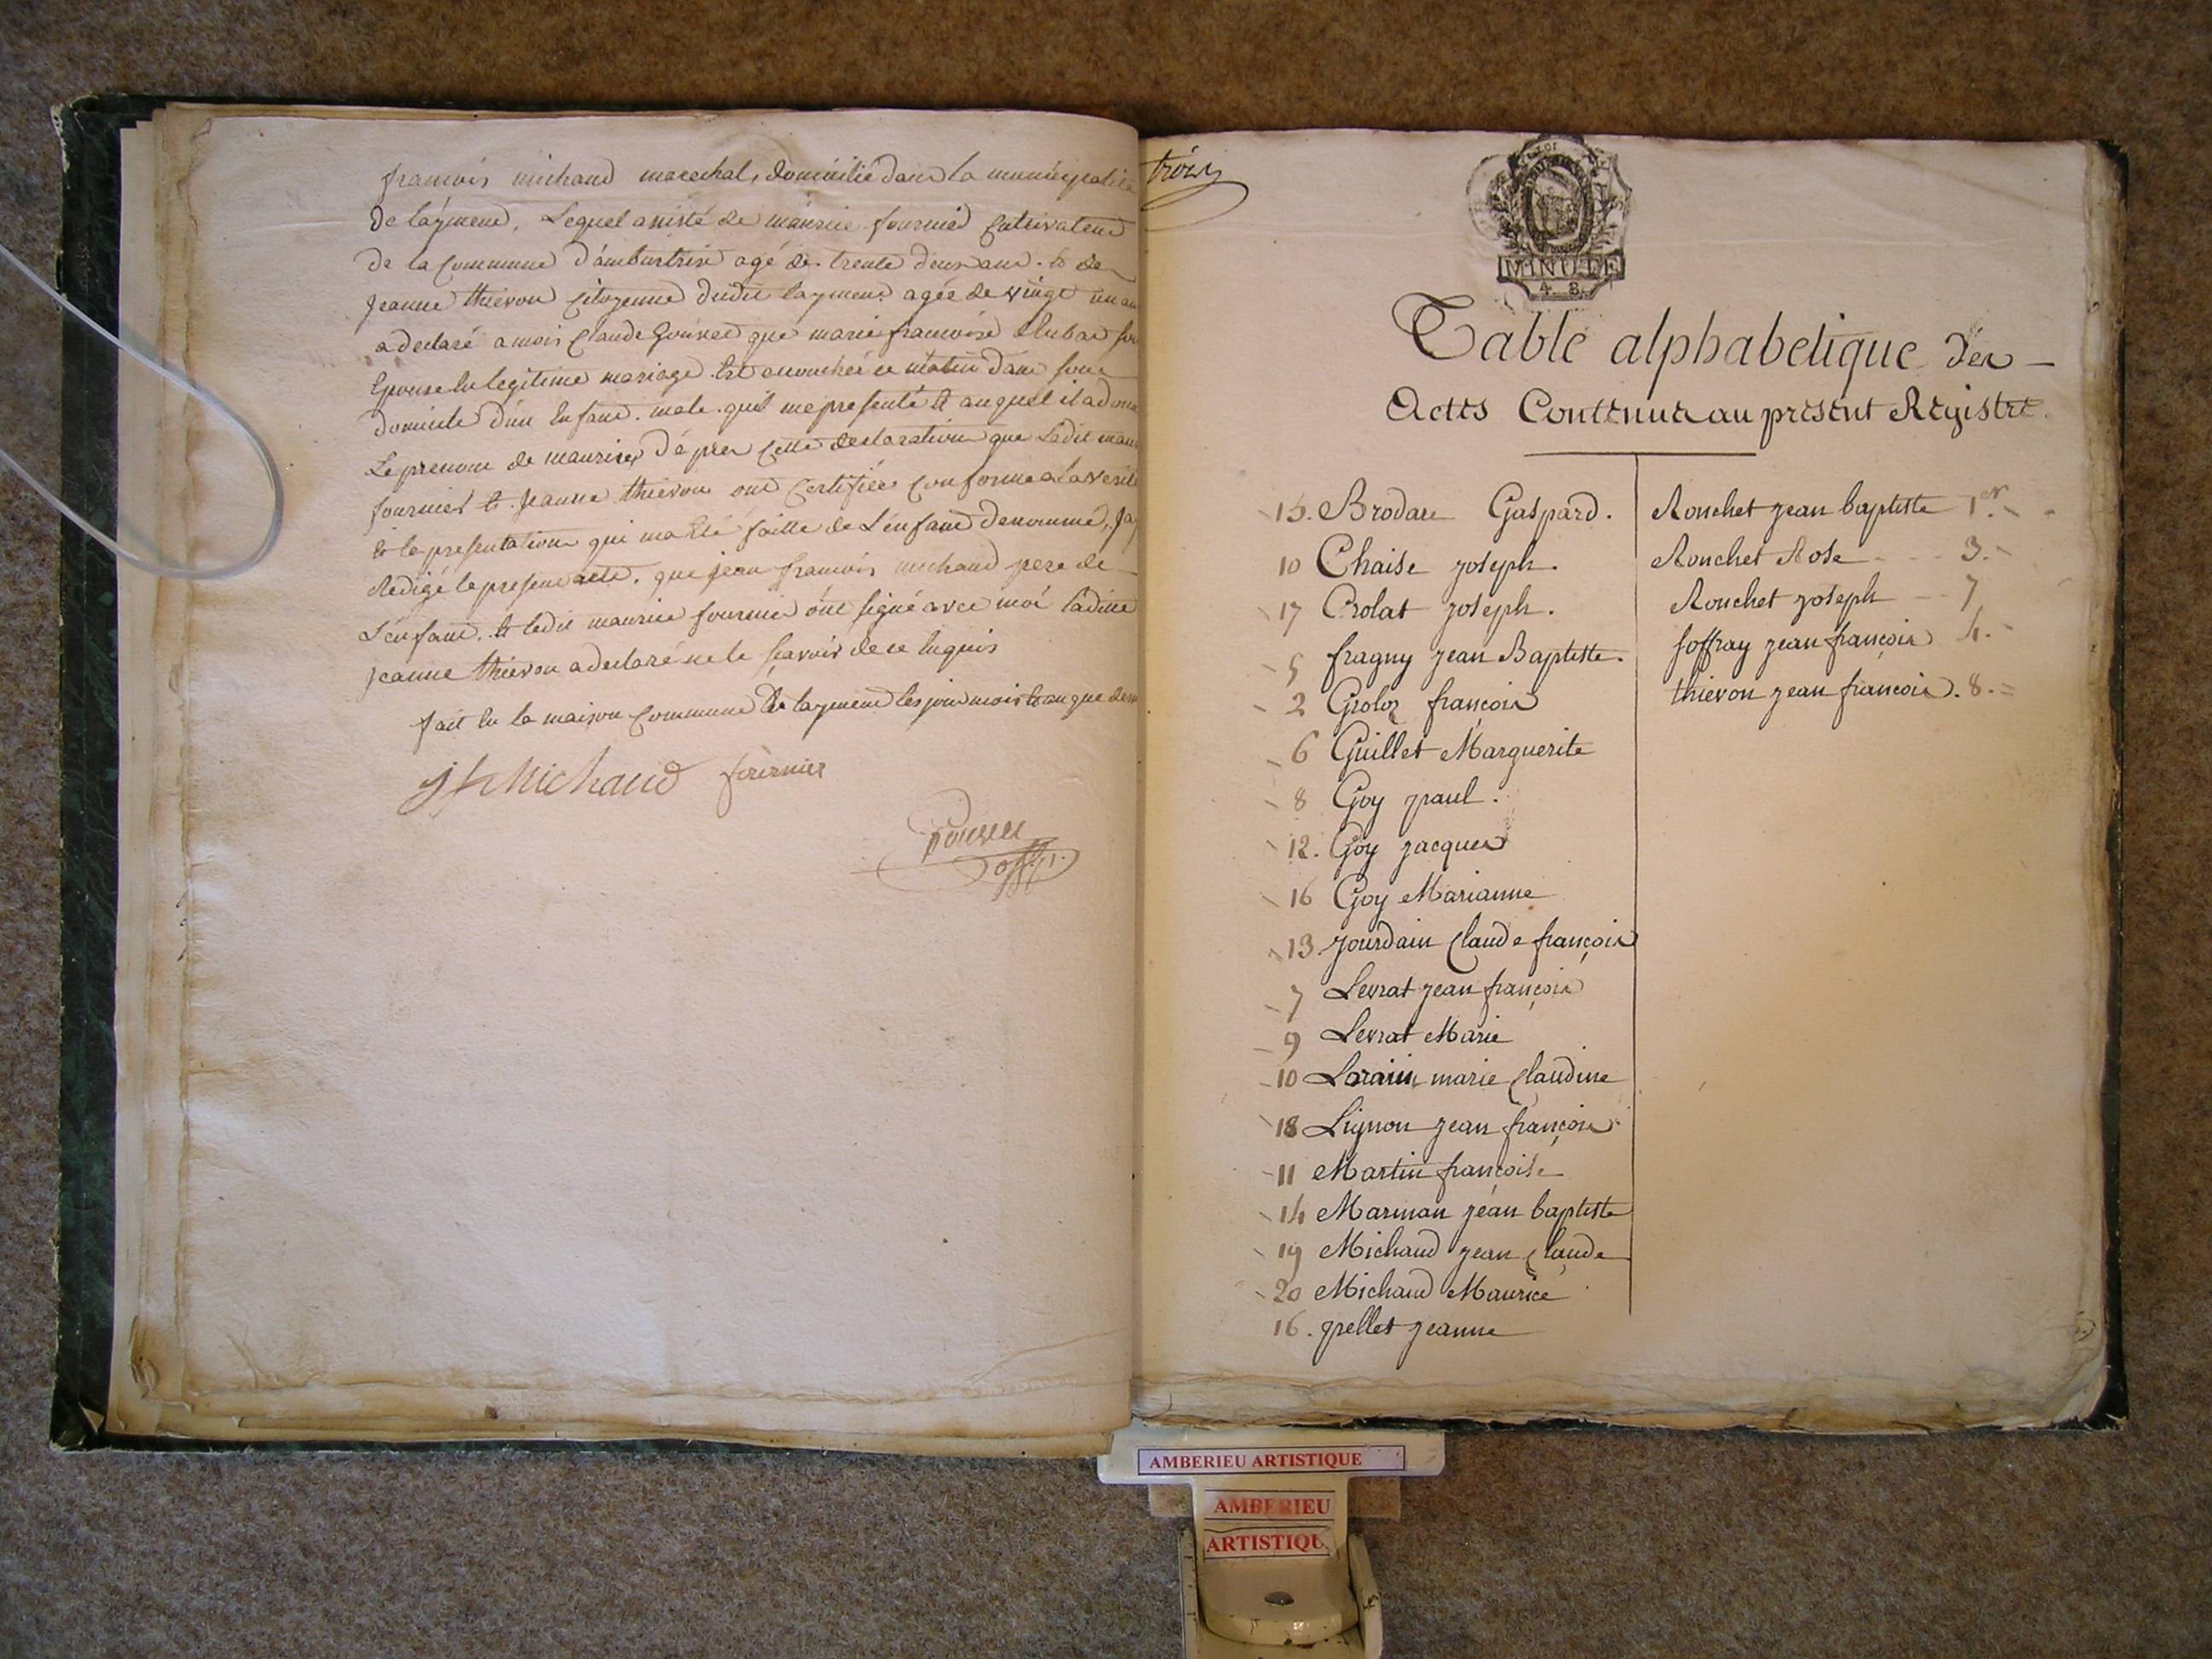 francois michaud marechal, domicilié dans la municipalité
de laÿment, Lequel assisté de maurice fournier Cultivateur
de la Commune d'ambutrix agé de trente deux ans. & de
Jeanne thievon Citoyenne dudit layment agée de vingt un ans
a declaré a moi Claude que marie francoise
Epouse En legitime mariage Est accouchée ce matin dans son
domicile d'un Enfant male qu'il me presenté Et auquel il a donné
Le prenom de maurice, d'apres cette declaration que Ledit maurice
fournier Et Jeanne thievon ont Certifiée Conforme a la verité
& la presentation qui m'a Eté faitte de L'enfant denommé, J'ay
Redigé le present acte, que jean francois michaud pere de
L'enfant, & ledit maurice fournier ont signé avec moi ladite
jeanne thievon a declaré ne le sçavoir de ce Enquis
fait En la maison Commune de layment les jour mois & an que dessus
jf Michaud fournier
off.
trois
MINUTE
4. S.
Table alphabetique des
Actes Contenus au présent Registre.
15. Brodau Gaspard.
10 Chaise joseph.
17 Crolat joseph.
5 fragny jean Baptiste.
2 Groloz françois
6 Guillet Marguerite
8 Goy paul.
12. Goy jacques
16 Goy Marianne
13 jourdain Claude françois
7 Levrat jean françois
9 Levrat Marie
10 Lorain marie Claudine
18 Lignon jean françois
11 Martin françoise
14 Marman jean baptiste
19 Michaud jean Claude
20 Michaud Maurice
16. pellet jeanne
Ronchet jean baptiste 1er.
Ronchet Rose 3.
Ronchet joseph 7
soffray jean françois 4.
thievon jean françois. 8.
AMBERIEU ARTISTIQUE
AMBERIEU
ARTISTIQU